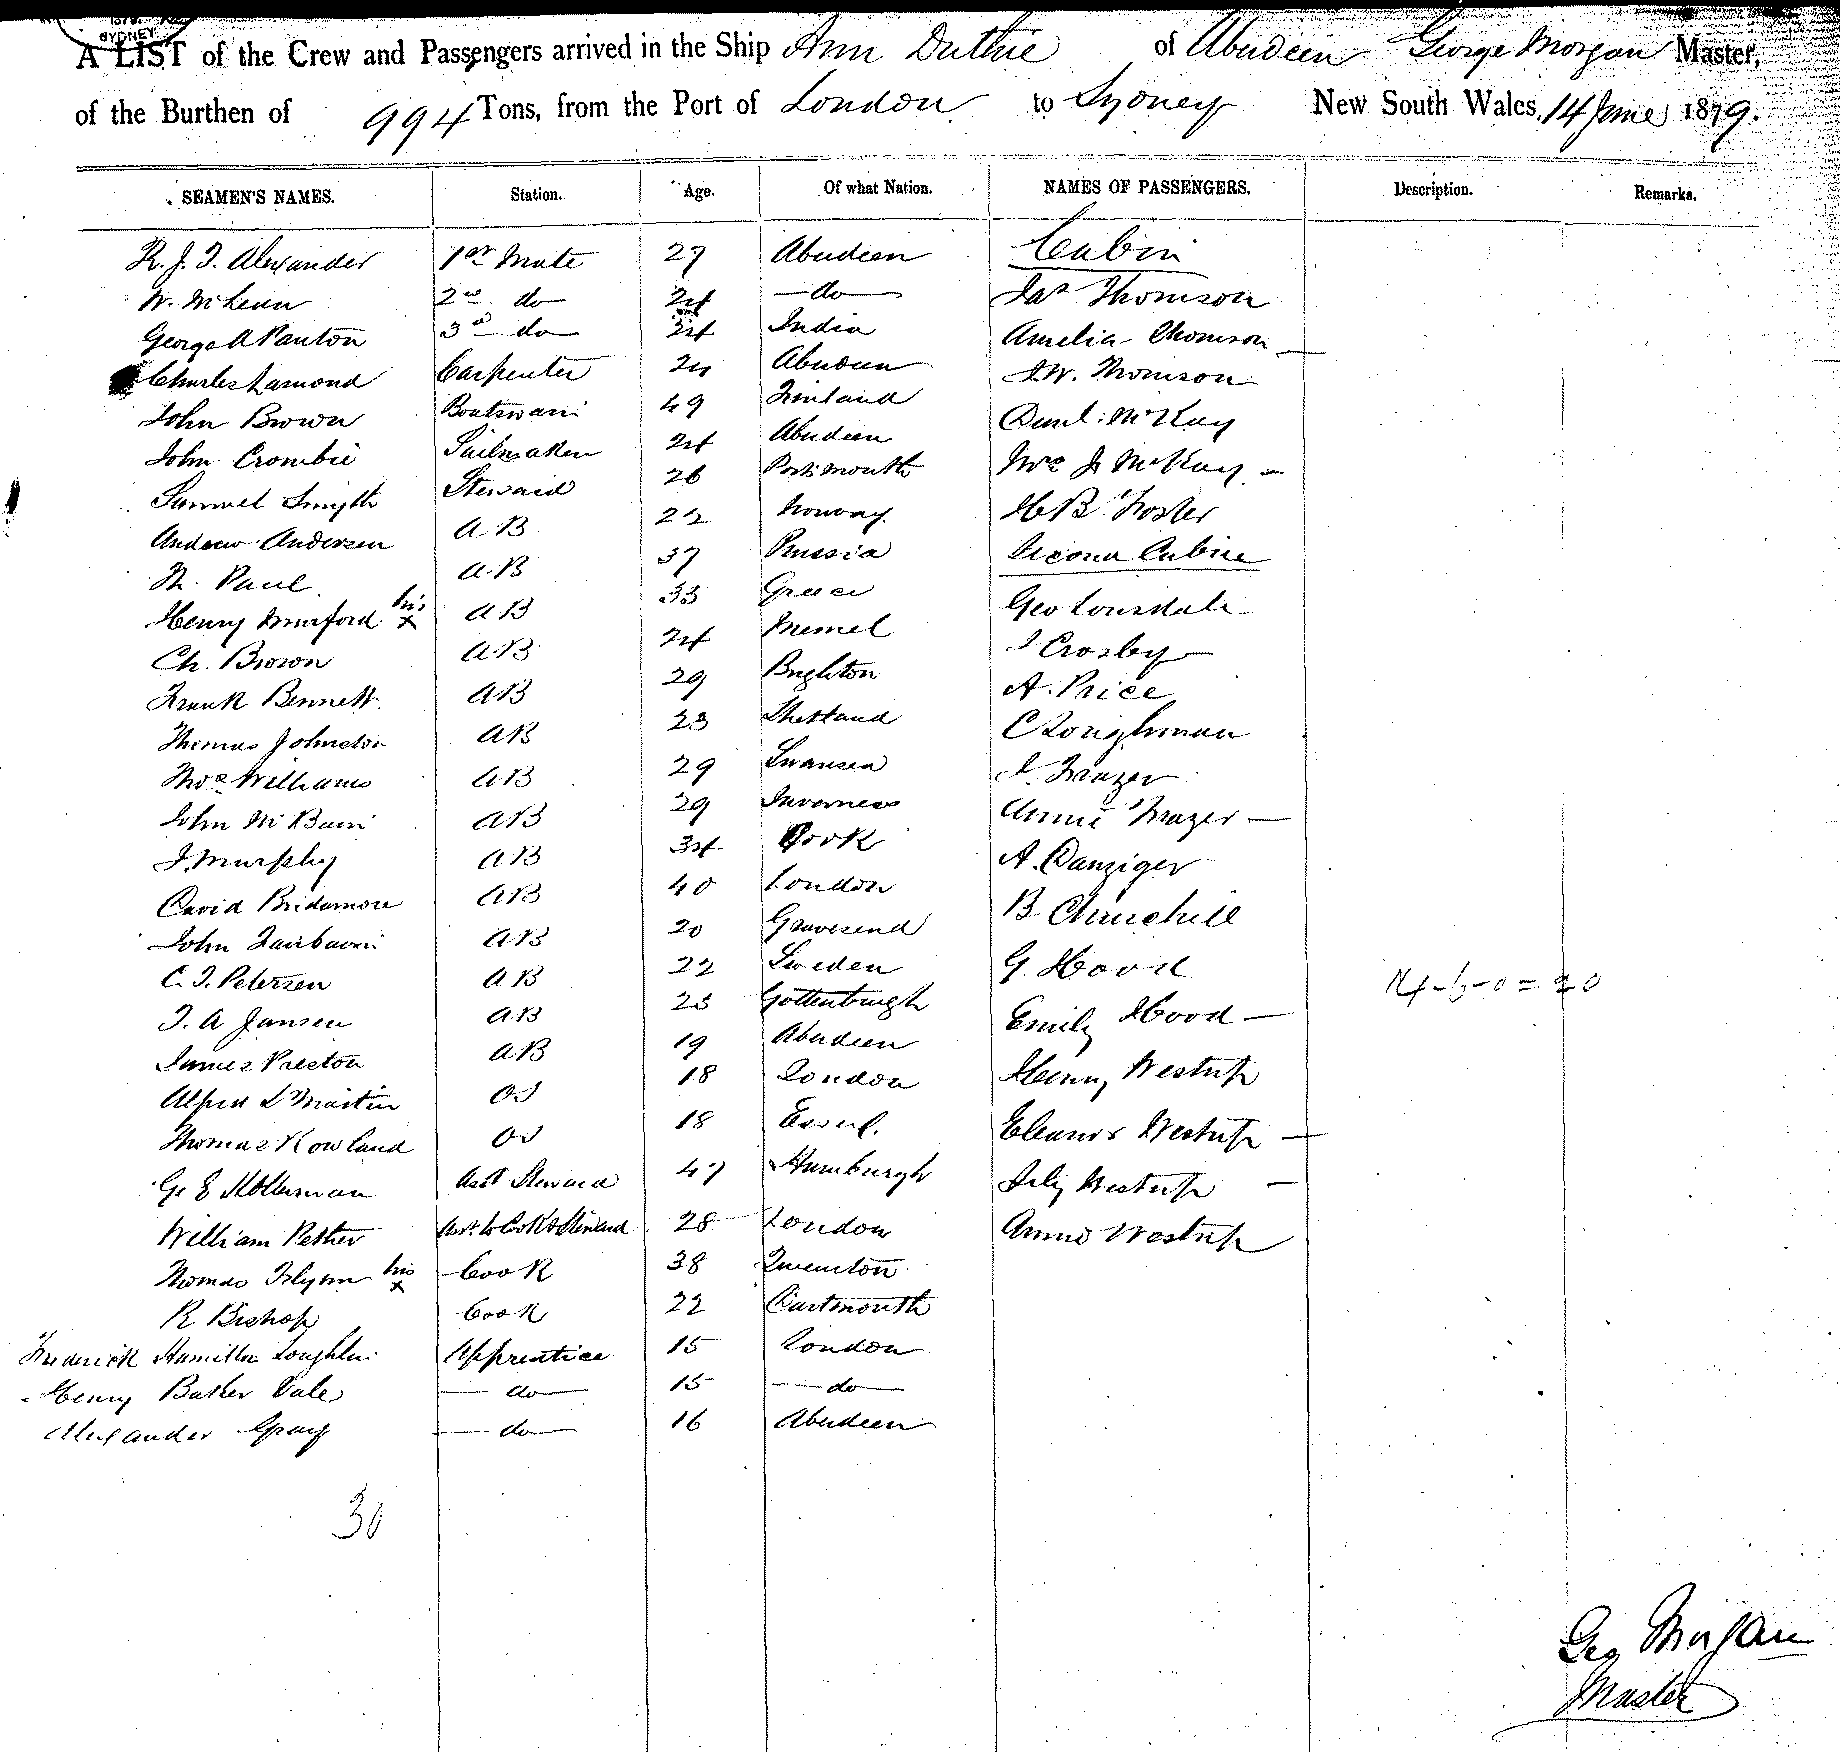 SYDNEY
A LIST of the Crew and Passengers arrived in the Ship Ann Duthie of Aberdeen George Morgan Master,
of the Burthen of 994 Tons, from the Port of London to Sydney New South Wales, 14 June 1879.
SEAMEN'S NAMES. Station. Age. Of what Nation. NAMES OF PASSENGERS. Description. Remarks.
R. J. T. Alexander 1st Mate 27 Aberdeen Cabin
W. McLean 2nd do 24 do Jas Thomson
George A Panton 3rd do India Amelia Thomson
Charles Lamond Carpenter 24 Aberdeen J W. Thomson
John Brown Boatswain 49 Finland Danl. McKay
John Crombie Sailmaker 24 Aberdeen Mrs J McKay
Samuel Smyth Steward 26 Portsmouth H B Foster
Andrew Andersen A B 22 Norway Second Cabin
Paul A.B 37 Russia Geo Lonsdale
Henry Munford his x A B 33 Greece J Crosby
Ch. Brown A.B 24 Memel A. Price
Frank Bennett AB 29 Brighton C Roughman
Thomas Johnston AB 23 Shetland J. Frazer
Thos Williams AB 29 Swansea Annie Frazer
John McBain AB 29 Inverness A. Danziger
J. Murphy AB 34 Cork B Churchill
David Bridemore AB 40 London G. Hood
John Fairbairn AB 20 Gravesend Emily Hood
C. J. Petersen AB 22 Sweden Henry Westrup
J. A Jansen A.B 23 Gottenburgh Eleanor Westrup
James Preston AB 19 Aberdeen July Westrup
Alfred L Martin OS 18 London Annie Westrup
Thomas Rowland OS 18 Essex.
G. E Kollerman Asst Steward 47 Hamburgh
William Pether Asst to Cook & Steward 28 London
Thomas Flynn his x Cook 38 Queenston
R Bishop Cook 22 Dartmouth
Frederick Hamilton Loughlin Apprentice 15 London
Henry Barker Vale do 15 do
Alexander Gray do 16 Aberdeen
14-6-0=20
30
Geo Morgan
Master